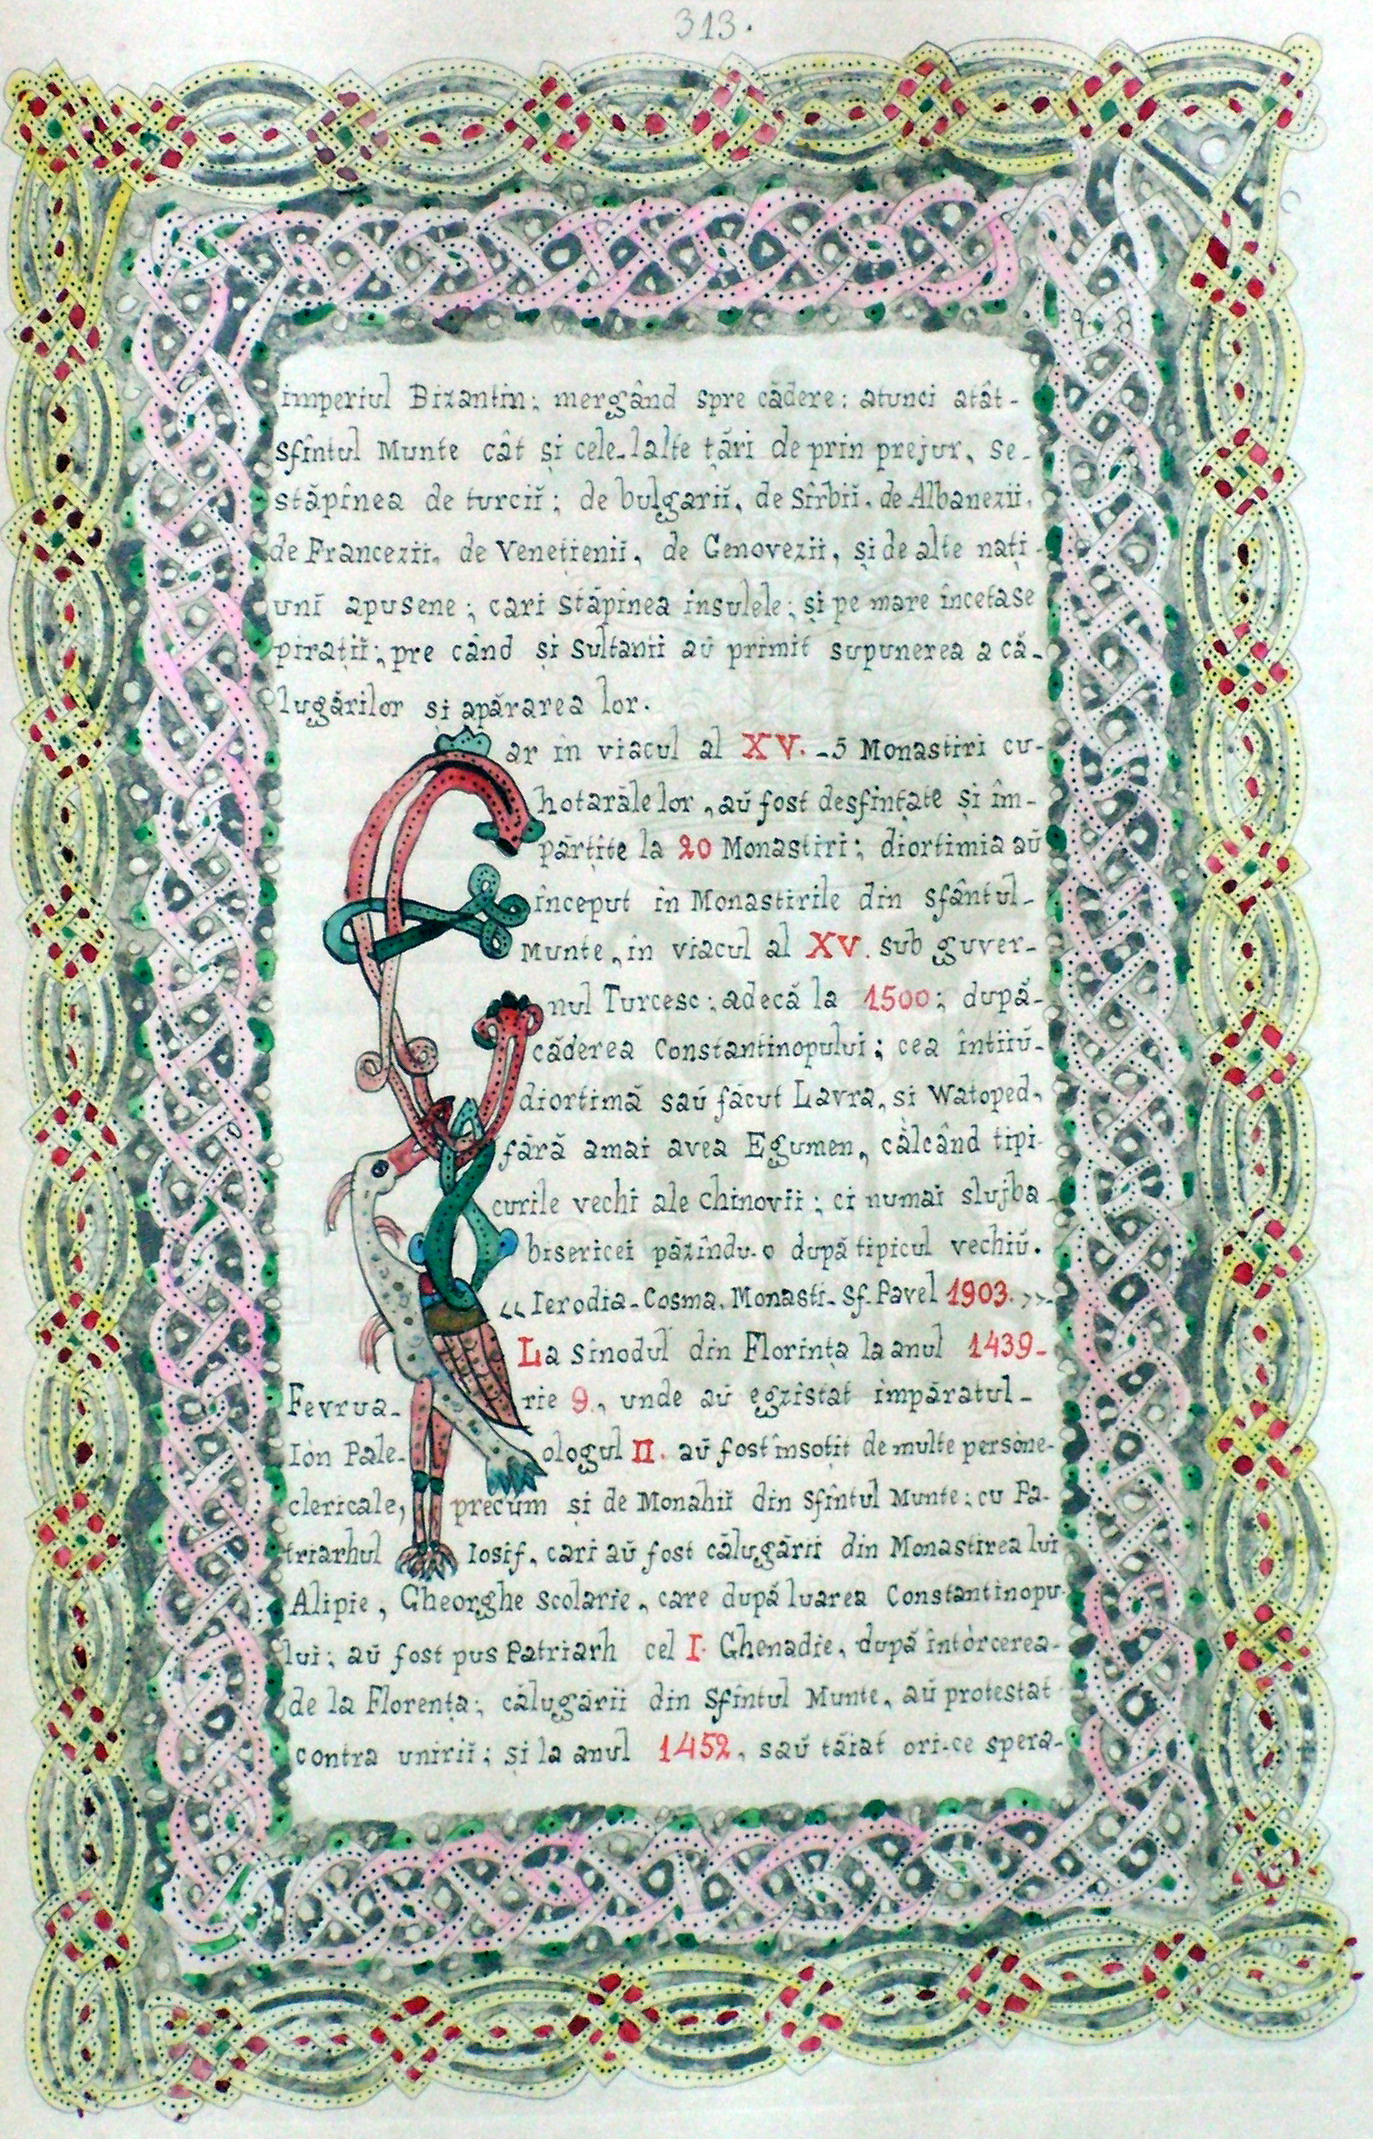 313.
imperiul Bizantin; mergând spre cădere: atunci atât-
sfîntul Munte cât și cele-lalte țări de prin prejur, se-
stăpînea de turciĭ; de bulgariĭ, de Sîrbiĭ, de Albaneziĭ,
de Franceziĭ, de Venețieniĭ, de Genoveziĭ, și de alte nați-
unĭ apusene; cari stăpînea insulele; și pe mare încetase
pirațiĭ; pre când și Sultanii aŭ primit supunerea a că-
lugărilor si apărarea lor.
Ear în viacul al XV. -5 Monastiri cu-
hotarăle lor, aŭ fost desfințate și îm-
părțite la 20 Monastiri; diortimia aŭ
început în Monastirile din sfântul-
Munte, în viacul al XV. sub guver-
nul Turcesc; adecă la 1500; după-
căderea Constantinopului; cea întiiŭ-
diortimă saŭ făcut Lavra, si Watoped,
fără amai avea Egumen, călcând tipi-
curile vechi ale chinovii; ci numai slujba-
bisericei păzîndu-o după tipicul vechiŭ.
„Ierodia-Cosma, Monasti- Sf-Pavel 1903.»-
La Sinodul din Florința la anul 1439-
Fevrua-rie 9., unde aŭ egzistat împăratul-
Iòn Pale-ologul II. aŭ fost însoțit de multe persòne-
clericale, precum si de Monahiĭ din Sfîntul Munte; cu Pa-
triarhul Iosif, cari aŭ fost călugării din Monastirea lui
Alipie, Gheorghe Scolarie, care după luarea Constantinopu-
lui; aŭ fost pus Patriarh cel I. Ghenadie, după întòrcerea-
de la Florența; călugării din Sfîntul Munte, aŭ protestat
contra unirii; și la anul 1452, saŭ tăiat ori-ce spera-